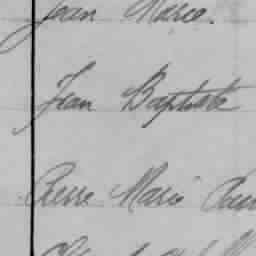 Jean Marie.
Jean Baptiste
Pierre Marie